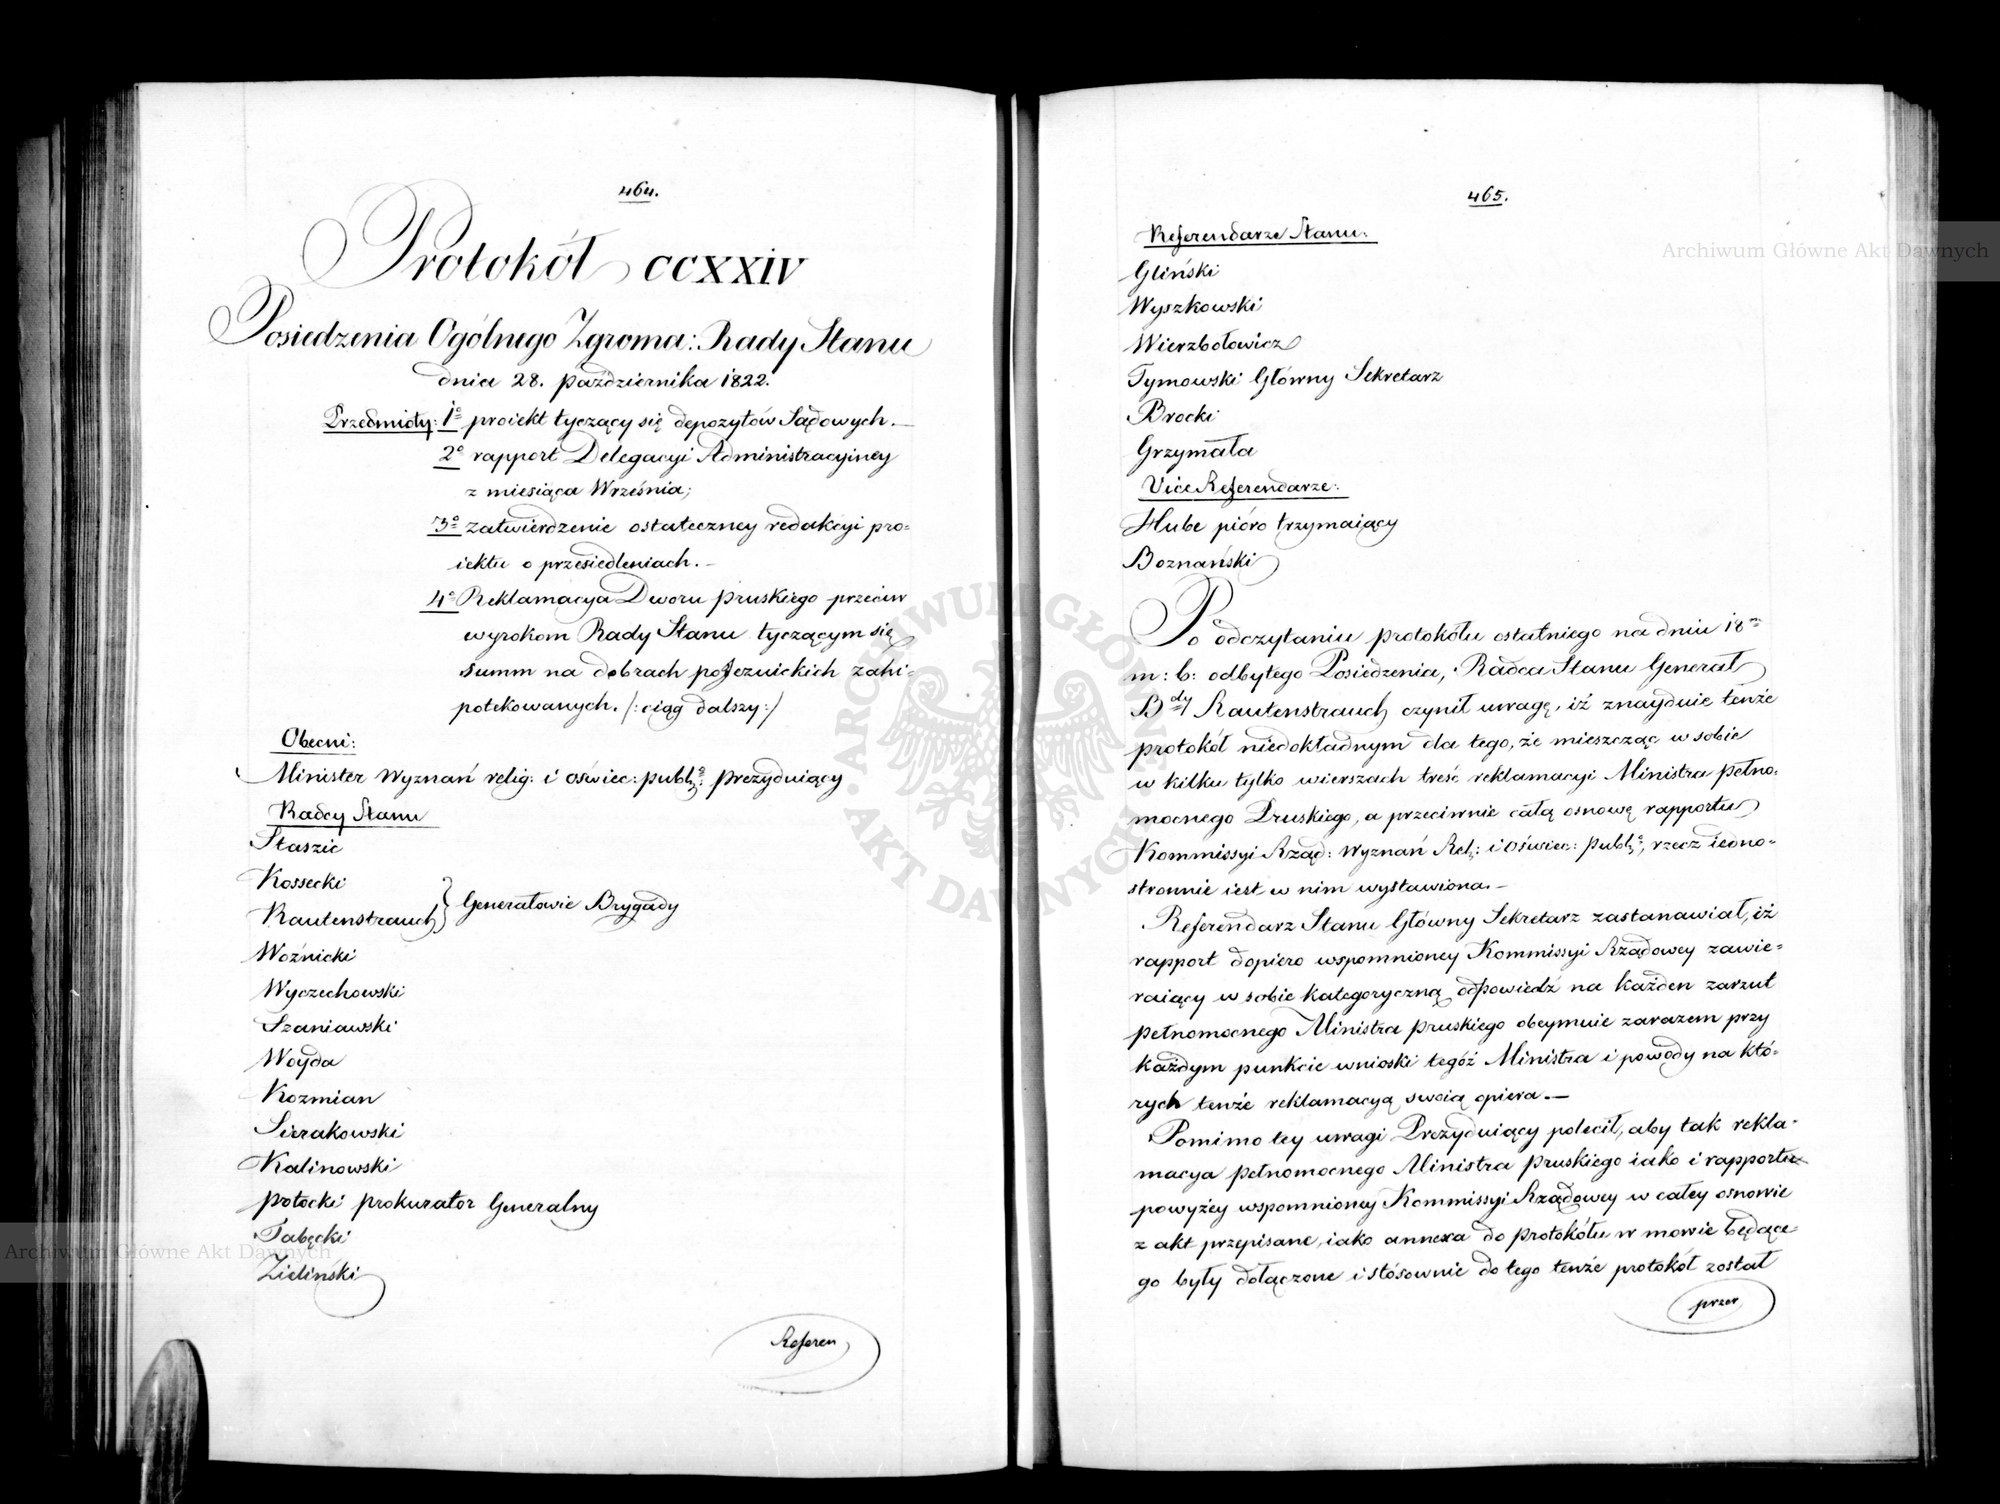 464.
Protokół CCXXIV
Posiedzenia Ogólnego Zgroma: Rady Stanu
dnia 28. października 1822.
Przedmioty: 1º proiekt tyczący się depozytów Sądowych. —
2º rapport Delegacyi Administracyiney
z miesiąca Września;
3º zatwierdzenie ostateczney redakcyi pro=
iektu o przesiedleniach. —
4º Reklamacya Dworu pruskiego przeciw
wyrokom Rady Stanu tyczącym się
summ na dobrach poJezuickich zahi=
potekowanych. /: ciąg dalszy :/
Obecni:
Minister Wyznań relig: i oświec: publ:º prezyduiący
Radcy Stanu
Staszic
Kossecki
Rautenstrauch } Generałowie Brygady
Woźnicki
Wyczechowski
Szaniawski
Woyda
Kozmian
Sierakowski
Kalinowski
Potocki prokurator Generalny
Tabęcki
Zieliński
Referen
465.
Referendarze Stanu:
Gliński
Wyszkowski
Wierzbołowicz
Tymowski Główny Sekretarz
Brocki
Grzymała
Vice Referendarze:
Hube pióro trzymaiący
Boznański
Po odczytaniu protokółu ostatniego na dniu 18m
m: b: odbytego Posiedzenia, Radca Stanu Generał
Bdy Rautenstrauch czynił uwagę, iż znayduie tenże
protokół niedokładnym dla tego, że mieszcząc w sobie
w kilku tylko wierszach treść reklamacyi Ministra pełno=
mocnego Pruskiego, a przeciwnie całą osnowę rapportu
Kommissyi Rząd: Wyznań Rel: i Oświec: publ:º, rzecz iedno=
stronnie iest w nim wystawiona. —
Referendarz Stanu Główny Sekretarz zastanawiał, iż
rapport dopiero wspomnioney Kommissyi Rządowey zawie=
raiący w sobie kategoryczną odpowiedź na każden zarzut
pełnomocnego Ministra pruskiego obeymuie zarazem przy
każdym punkcie wnioski tegoż Ministra i powody na któ=
rych tenże reklamacyą swoią opiera. —
Pomimo tey uwagi Prezyduiący polecił, aby tak rekla=
macya pełnomocnego Ministra pruskiego iako i rapportu
powyżey wspomnioney Kommissyi Rządowey w całey osnowie
z akt przepisane, iako annexa do protokółu w mowie będące
go były dołączone i stósownie do tego tenże protokół został
przer
Archiwum Główne Akt Dawnych
Archiwum Główne Akt Dawnych
ARCHIWUM GŁÓWNE • AKT DAWNYCH •